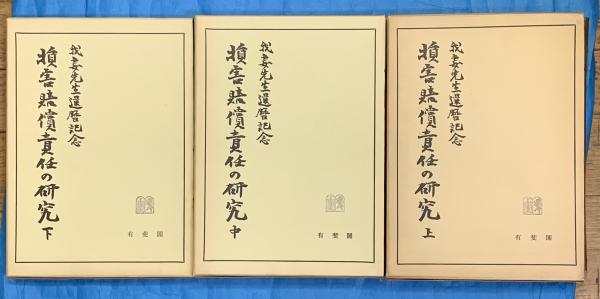 我妻先生還暦記念
損害賠償責任の研究 上
有斐閣
我妻先生還暦記念
損害賠償責任の研究 中
有斐閣
我妻先生還暦記念
損害賠償責任の研究 下
有斐閣